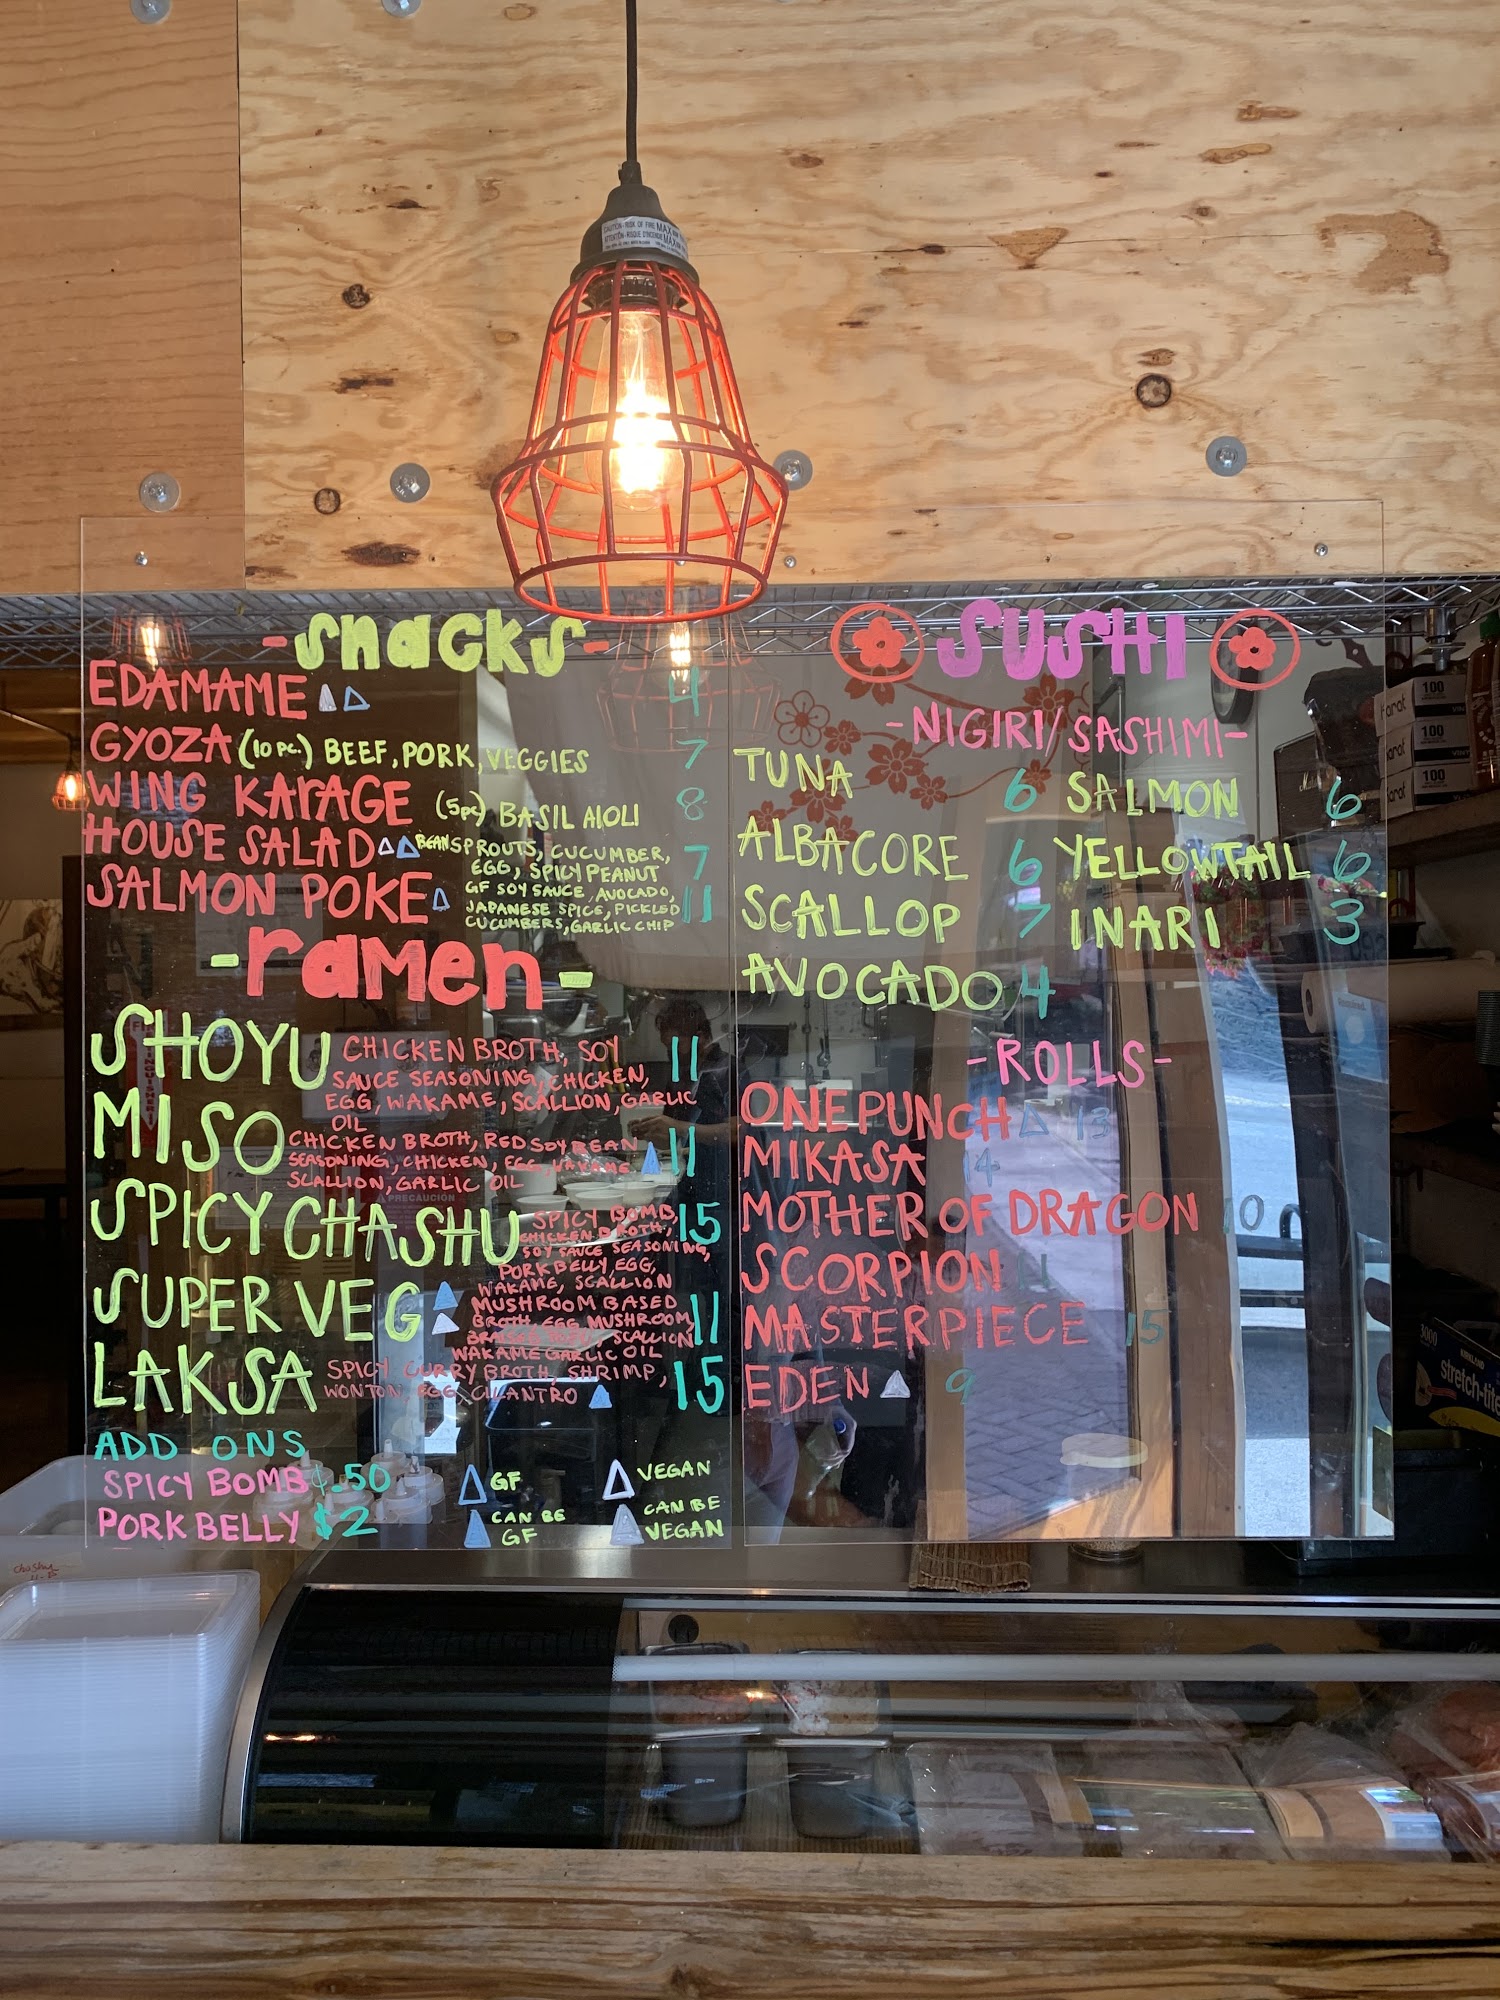 CAUTION - RISK OF FIRE MAX
ATTENTION - RISQUE D'INCENDIE MAX
-snacks-
EDAMAME 4
GYOZA (10 PC.) BEEF, PORK, VEGGIES 7
WING KARAGE (5pc) BASIL AIOLI 8
HOUSE SALAD BEAN SPROUTS, CUCUMBER,
EGG, SPICY PEANUT 7
SALMON POKE GF SOY SAUCE, AVOCADO,
JAPANESE SPICE, PICKLED 11
CUCUMBERS, GARLIC CHIP
-ramen-
SHOYU CHICKEN BROTH, SOY 11
SAUCE SEASONING, CHICKEN,
EGG, WAKAME, SCALLION, GARLIC
OIL
MISO CHICKEN BROTH, RED SOY BEAN
SEASONING, CHICKEN, EGG, WAKAME 11
SCALLION, GARLIC OIL
SPICY CHASHU SPICY BOMB, 15
CHICKEN BROTH,
SOY SAUCE SEASONING,
PORK BELLY, EGG,
WAKAME, SCALLION
SUPER VEG MUSHROOM BASED
BROTH, EGG, MUSHROOM, 11
BRAISED TOFU, SCALLION
WAKAME GARLIC OIL
LAKSA SPICY CURRY BROTH, SHRIMP, 15
WONTON, EGG, CILANTRO
ADD ONS
SPICY BOMB $.50
PORK BELLY $2
GF
VEGAN
CAN BE
GF
CAN BE
VEGAN
SUSHI
-NIGIRI/SASHIMI-
TUNA 6 SALMON 6
ALBACORE 6 YELLOWTAIL 6
SCALLOP 7 INARI 3
AVOCADO 4
-ROLLS-
ONEPUNCH 13
MIKASA 14
MOTHER OF DRAGON 10
SCORPION 11
MASTERPIECE 15
EDEN 9
PRECAUCIÓN
Karat 100
Karat 100
Karat 100
3000
KIRKLAND
stretch-tite